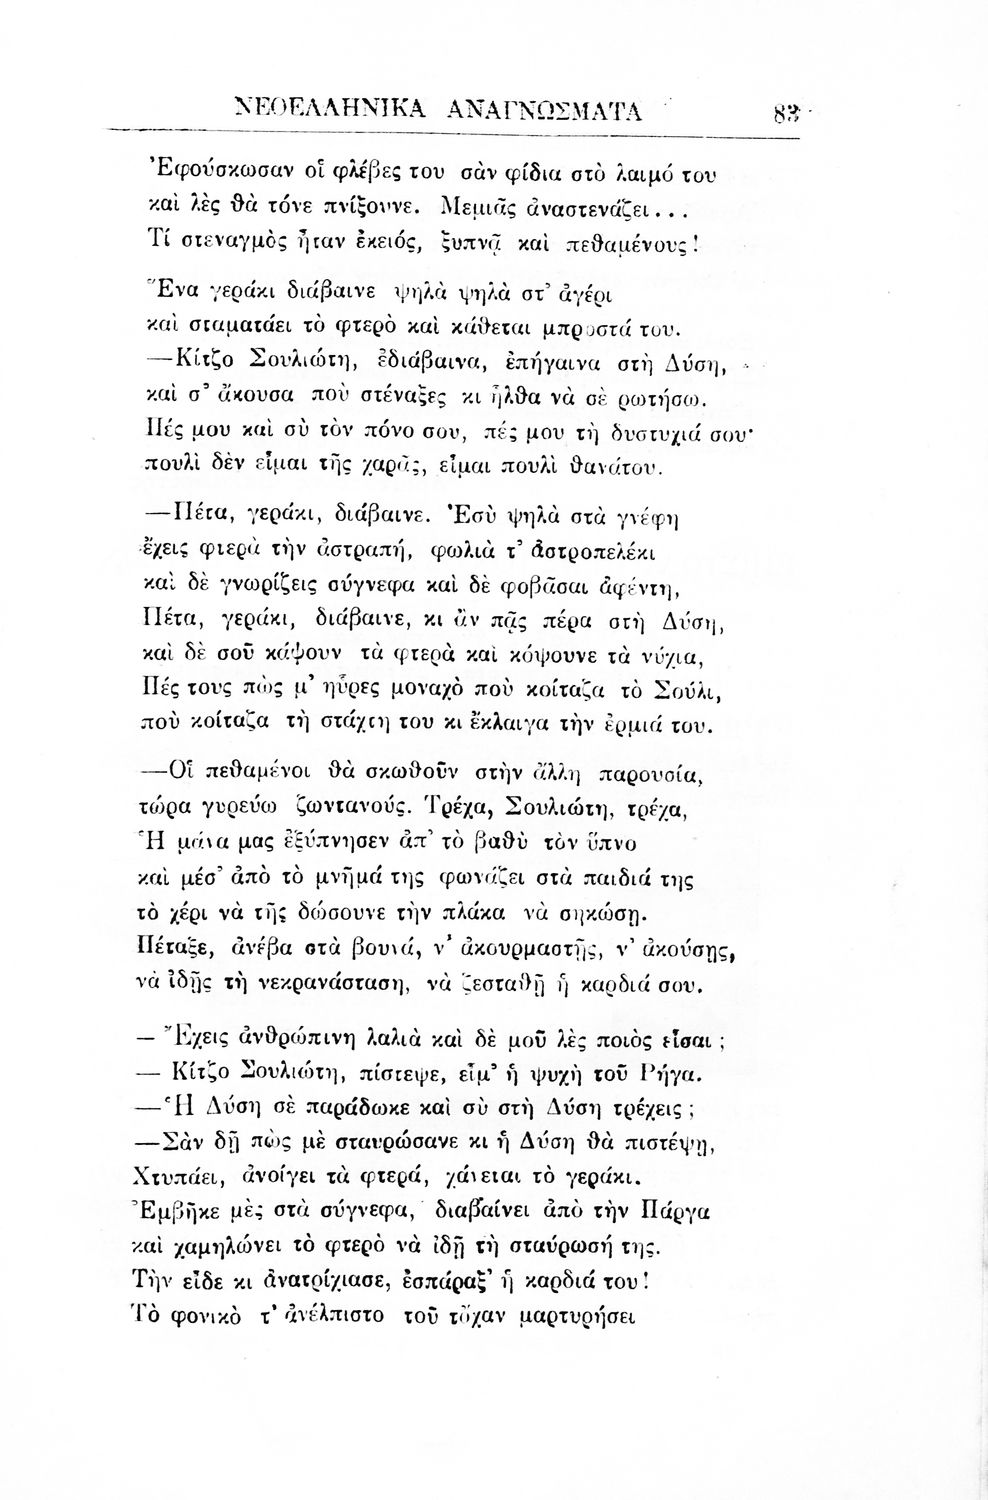 ΝΕΟΕΛΛΗΝΙΚΑ ΑΝΑΓΝΩΣΜΑΤΑ 83
Ἐφούσκωσαν οἱ φλέβες του σὰν φίδια στὸ λαιμό του
καὶ λὲς θὰ τόνε πνίξουνε. Μεμιᾶς ἀναστενάζει...
Τί στεναγμὸς ἦταν ἐκειός, ξυπνᾷ καὶ πεθαμένους!
Ἕνα γεράκι διάβαινε ψηλὰ ψηλὰ στ' ἀγέρι
καὶ σταματάει τὸ φτερὸ καὶ κάθεται μπροστά του.
—Κίτζο Σουλιώτη, ἐδιάβαινα, ἐπήγαινα στὴ Δύση,
καὶ σ' ἄκουσα ποὺ στέναξες κι ἦλθα νὰ σὲ ρωτήσω.
Πές μου καὶ σὺ τὸν πόνο σου, πές μου τὴ δυστυχιά σου·
πουλὶ δὲν εἶμαι τῆς χαρᾶς, εἶμαι πουλὶ θανάτου.
—Πέτα, γεράκι, διάβαινε. Ἐσὺ ψηλὰ στὰ γνέφη
ἔχεις φτερὰ τὴν ἀστραπή, φωλιὰ τ' ἀστροπελέκι
καὶ δὲ γνωρίζεις σύγνεφα καὶ δὲ φοβᾶσαι ἀφέντη,
Πέτα, γεράκι, διάβαινε, κι ἂν πᾷς πέρα στὴ Δύση,
καὶ δὲ σοῦ κάψουν τὰ φτερὰ καὶ κόψουνε τὰ νύχια,
Πές τους πὼς μ' ηὗρες μοναχὸ ποὺ κοίταζα τὸ Σούλι,
ποὺ κοίταζα τὴ στάχτη του κι ἔκλαιγα τὴν ἐρμιά του.
—Οἱ πεθαμένοι θὰ σκωθοῦν στὴν ἄλλη παρουσία,
τώρα γυρεύω ζωντανούς. Τρέχα, Σουλιώτη, τρέχα,
Ἡ μάνα μας ἐξύπνησεν ἀπ' τὸ βαθὺ τὸν ὕπνο
καὶ μέσ' ἀπὸ τὸ μνῆμά της φωνάζει στὰ παιδιά της
τὸ χέρι νὰ τῆς δώσουνε τὴν πλάκα νὰ σηκώσῃ.
Πέταξε, ἀνέβα στὰ βουνά, ν' ἀκουρμαστῇς, ν' ἀκούσῃς,
νὰ ἰδῇς τὴ νεκρανάσταση, νὰ ζεσταθῇ ἡ καρδιά σου.
— Ἔχεις ἀνθρώπινη λαλιὰ καὶ δὲ μοῦ λὲς ποιὸς εἶσαι;
— Κίτζο Σουλιώτη, πίστεψε, εἶμ' ἡ ψυχὴ τοῦ Ρήγα.
—Ἡ Δύση σὲ παράδωκε καὶ σὺ στὴ Δύση τρέχεις;
—Σὰν δῇ πὼς μὲ σταυρώσανε κι ἡ Δύση θὰ πιστέψῃ,
Χτυπάει, ἀνοίγει τὰ φτερά, χάνεται τὸ γεράκι.
Ἐμβῆκε μὲς στὰ σύγνεφα, διαβαίνει ἀπὸ τὴν Πάργα
καὶ χαμηλώνει τὸ φτερὸ νὰ ἰδῇ τὴ σταύρωσή της.
Τὴν εἶδε κι ἀνατρίχιασε, ἐσπάραξ' ἡ καρδιά του!
Τὸ φονικὸ τ' ἀνέλπιστο τοῦ τὄχαν μαρτυρήσει